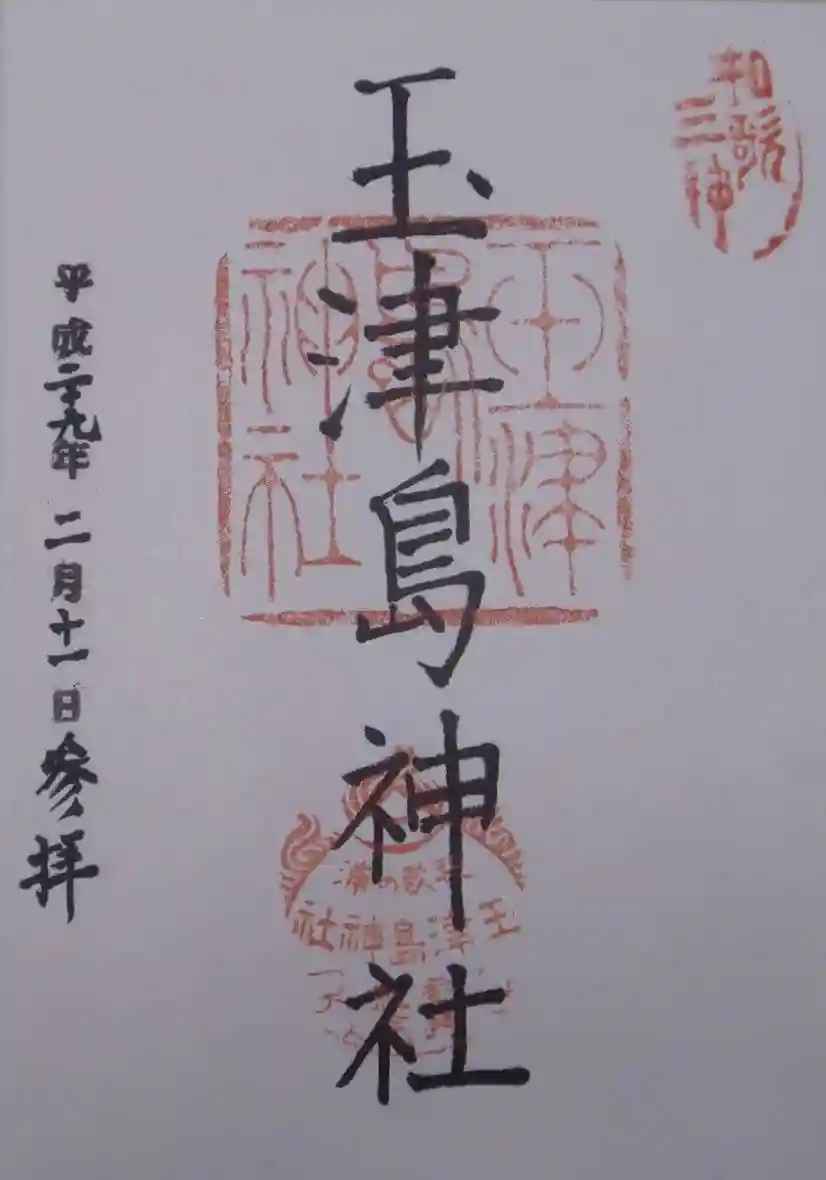 和歌
三神
玉津島神社
玉津
島
神社
平成二十九年二月十一日参拝
和歌の浦
玉津島神社